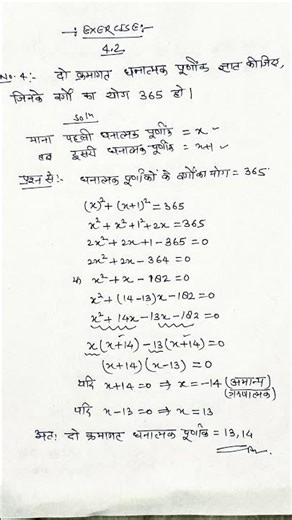 → EXERCISE:-
4.2
No. 4:- दो क्रमागत धनात्मक पूर्णांक ज्ञात कीजिए,
जिनके वर्गों का योग 365 हो।
Soln
माना पहली धनात्मक पूर्णांक = x
तब दूसरी धनात्मक पूर्णांक = x+1
प्रश्न से:- धनात्मक पूर्णांकों के वर्गों का योग = 365
(x)² + (x+1)² = 365
x² + x² + 1² + 2x = 365
2x² + 2x + 1 - 365 = 0
2x² + 2x - 364 = 0
x² + x - 182 = 0
x² + (14-13)x - 182 = 0
x² + 14x - 13x - 182 = 0
x(x+14) - 13(x+14) = 0
(x+14)(x-13) = 0
यदि x+14 = 0 ⇒ x = -14 (अमान्य)
(ऋणात्मक)
यदि x-13 = 0 ⇒ x = 13
अतः दो क्रमागत धनात्मक पूर्णांक = 13, 14